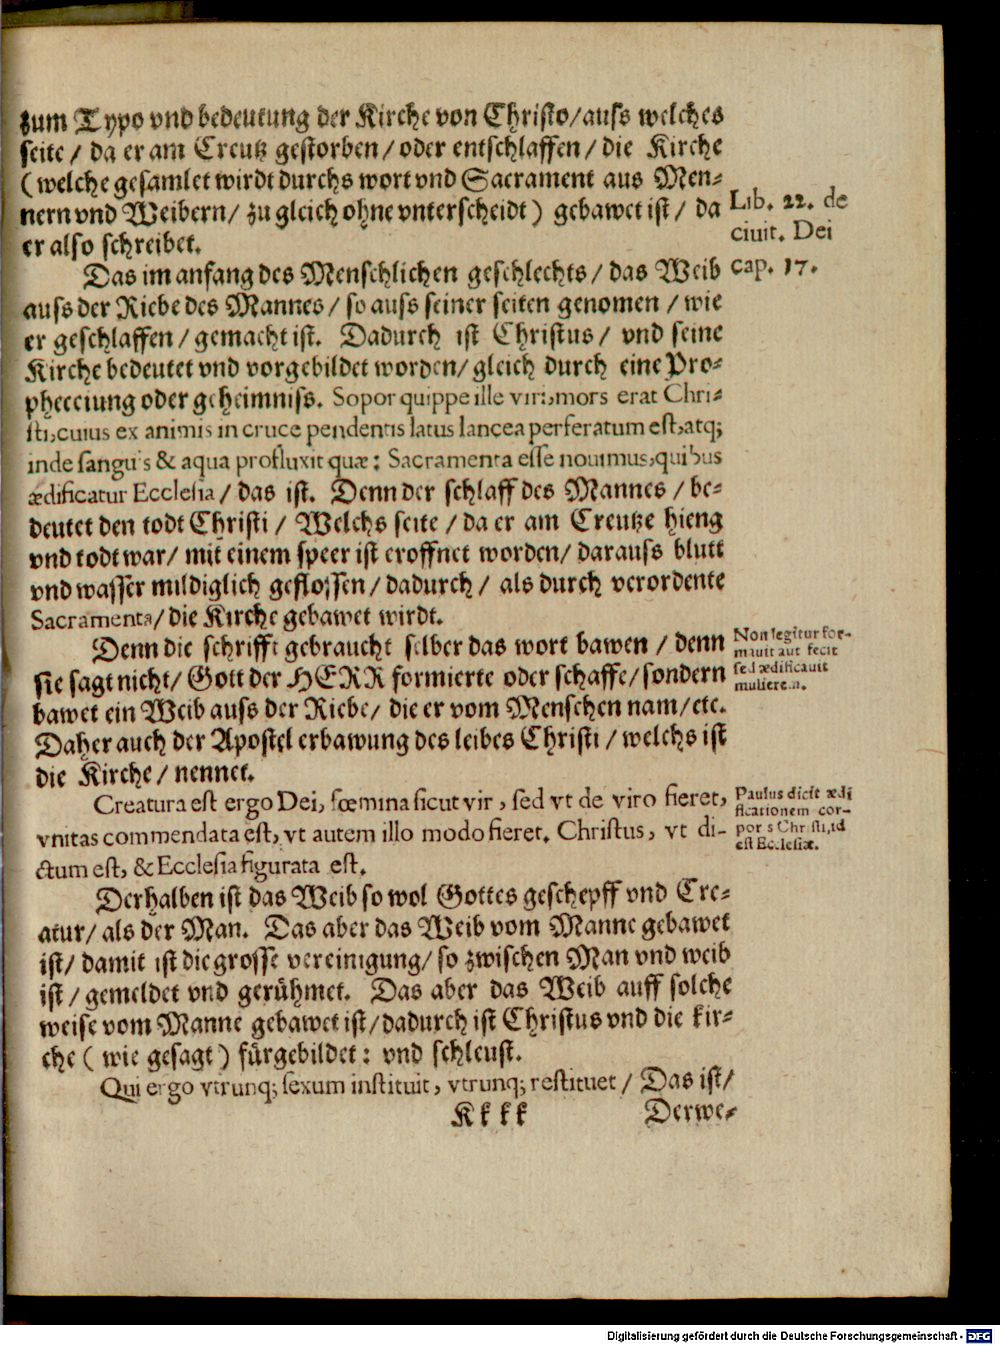 zum Typo vnd bedeutung der Kirche von Christo/auſs welches
ſeite / da er am Creutz geſtorben / oder entſchlaffen / die Kirche
(welche geſamlet wirdt durchs wort vnd Sacrament aus Men-
nern vnd Weibern/ zu gleich ohne vnterſcheidt) gebawet iſt / da
er alſo ſchreibet.
Lib. 22. de
ciuit. Dei
cap. 17.
Das im anfang des Menſchlichen geſchlechts / das Weib
auſs der Riebe des Mannes / ſo auſs ſeiner ſeiten genomen / wie
er geſchlaffen / gemacht iſt. Dadurch iſt Chriſtus / vnd ſeine
Kirche bedeutet vnd vorgebildet worden/ gleich durch eine Pro-
pheceiung oder geheimniſs. Sopor quippe ille viri, mors erat Chri-
ſti, cuius ex animis in cruce pendentis latus lancea perferatum eſt, atq;
inde ſanguis & aqua profluxit quæ: Sacramenta eſſe nouimus, quibus
ædificatur Eccleſia / das iſt. Denn der ſchlaff des Mannes / be-
deutet den todt Chriſti / Welchs ſeite / da er am Creutze hieng
vnd todt war/ mit einem ſpeer iſt eroffnet worden/ darauſs blutt
vnd waſſer mildiglich gefloſſen / dadurch / als durch verordente
Sacramenta/ die Kirche gebawet wirdt.
Denn die ſchrifft gebraucht ſelber das wort bawen / denn
ſie ſagt nicht/ Gott der HERR formierte oder ſchaffe/ ſondern
bawet ein Weib auſs der Riebe/ die er vom Menſchen nam/etc.
Daher auch der Apoſtel erbawung des leibes Chriſti / welchs iſt
die Kirche / nennet.
Non legitur for-
mauit aut fecit
ſed ædificauit
mulierem.
Creatura eſt ergo Dei, fœmina ſicut vir, ſed vt de viro fieret,
vnitas commendata eſt, vt autem illo modo fieret. Chriſtus, vt di-
ctum eſt, & Eccleſia figurata eſt.
Paulus dicit ædi
ficationem cor-
poris Chriſti, id
eſt Eccleſiæ.
Derhalben iſt das Weib ſo wol Gottes geſchepff vnd Cre-
atur/ als der Man. Das aber das Weib vom Manne gebawet
iſt/ damit iſt die groſſe vereinigung/ ſo zwiſchen Man vnd weib
iſt / gemeldet vnd gerühmet. Das aber das Weib auff ſolche
weiſe vom Manne gebawet iſt/dadurch iſt Chriſtus vnd die kir-
che ( wie geſagt ) fürgebildet: vnd ſchleuſt.
Qui ergo vtrunq; ſexum inſtituit, vtrunq; reſtituet / Das iſt/
Kkkk
Derwe-
Digitalisierung gefördert durch die Deutsche Forschungsgemeinschaft - DFG